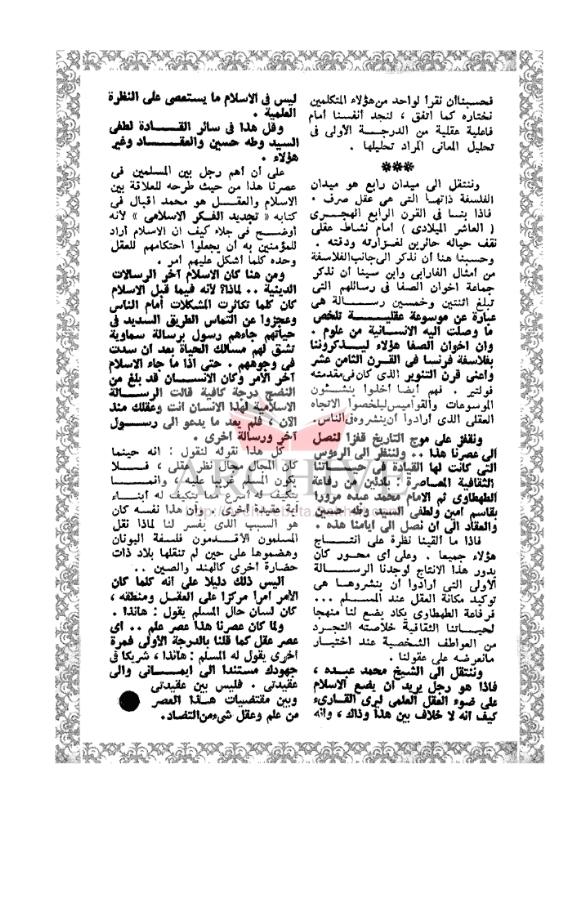 فحسبنا أن نقرأ لواحد من هؤلاء المتكلمين
نختاره كما اتفق ، لنجد أنفسنا أمام
فاعلية عقلية من الدرجة الأولى فى
تحليل المعانى المراد تحليلها .
***
وننتقل الى ميدان رابع هو ميدان
الفلسفة ذاتها التى هى عقل صرف .
فاذا بنا فى القرن الرابع الهجرى
( العاشر الميلادى ) أمام نشاط عقلى
نقف حياله حائرين لغزارته ودقته .
وحسبنا هنا أن نذكر الى جانب الفلاسفة
من أمثال الفارابى وابن سينا أن نذكر
جماعة اخوان الصفا فى رسائلهم التى
تبلغ اثنتين وخمسين رسالة هى
عبارة عن موسوعة عقلية تلخص
ما وصلت اليه الانسانية من علوم .
وان اخوان الصفا هؤلاء ليذكروننا
بفلاسفة فرنسا فى القرن الثامن عشر
وأعنى قرن التنوير الذى كان فى مقدمته
فولتير . فهم أيضا أخذوا ينشئون
الموسوعات والقواميس ليلخصوا الاتجاه
العقلى الذى أرادوا أن ينشروه فى الناس.
ونقفز على موج التاريخ قفزا لنصل
الى عصرنا هذا .. ولننظر الى الرءوس
التى كانت لها القيادة فى حياتنا
الثقافية المعاصرة : بادئين من رفاعة
الطهطاوى ثم الامام محمد عبده مرورا
بقاسم أمين ولطفى السيد وطه حسين
والعقاد الى أن نصل الى أيامنا هذه .
فاذا ما ألقينا نظرة على انتاج
هؤلاء جميعا . وعلى أى محور كان
يدور هذا الانتاج لوجدنا الرسالة
الأولى التى أرادوا أن ينشروها هى
توكيد مكانة العقل عند المسلم ...
فرفاعة الطهطاوى يكاد يضع لنا منهجا
لحياتنا الثقافية خلاصته التجرد
من العواطف الشخصية عند اختيار
مانعرضه على عقولنا .
وننتقل الى الشيخ محمد عبده ،
فاذا هو رجل يريد أن يضع الاسلام
على ضوء العقل العلمى ليرى القارىء
كيف أنه لا خلاف بين هذا وذاك ، وأنه
ليس فى الاسلام ما يستعصى على النظرة
العلمية .
وقل هذا فى سائر القادة لطفى
السيد وطه حسين والعقاد وغير
هؤلاء .
على أن أهم رجل بين المسلمين فى
عصرنا هذا من حيث طرحه للعلاقة بين
الاسلام والعقل هو محمد اقبال فى
كتابه « تجديد الفكر الاسلامى » لأنه
أوضح فى جلاء كيف ان الاسلام أراد
للمؤمنين به أن يجعلوا احتكامهم للعقل
وحده كلما أشكل عليهم أمر .
ومن هنا كان الاسلام آخر الرسالات
الدينية .. لماذا؟ لأنه فيما قبل الاسلام
كان كلما تكاثرت المشكلات أمام الناس
وعجزوا عن التماس الطريق السديد فى
حياتهم جاءهم رسول برسالة سماوية
تشق لهم مسالك الحياة بعد ان سدت
فى وجوههم . حتى اذا ما جاء الاسلام
آخر الأمر وكان الانسان قد بلغ من
النضج درجة كافية قالت الرسالة
الاسلامية لهذا الانسان أنت وعقلك منذ
الآن ، فلم يعد ما يدعو الى رسول
آخر ورسالة أخرى .
كل هذا نقوله لنقول : انه حينما
كان المجال مجال نظر عقلى ، فلا
يكون المسلم غريبا عليه ، وانما
يتكيف له أسرع مما يتكيف له أبناء
أية عقيدة أخرى . وان هذا نفسه كان
هو السبب الذى يفسر لنا لماذا نقل
المسلمون الأقدمون فلسفة اليونان
وهضموها على حين لم تنقلها بلاد ذات
حضارة أخرى كالهند والصين ..
أليس ذلك دليلا على انه كلما كان
الأمر أمرا مركزا على العقل ومنطقه ،
كان لسان حال المسلم يقول : هأنذا .
ولما كان عصرنا هذا عصر علم .. أى
عصر عقل كما قلنا بالدرجة الأولى فمرة
أخرى يقول له المسلم : هأنذا ، شريكا فى
جهودك مستندا الى ايمانى والى
عقيدتى . فليس بين عقيدتى
وبين مقتضيات هذا العصر
من علم وعقل شىء من التضاد.
ARCHIVE